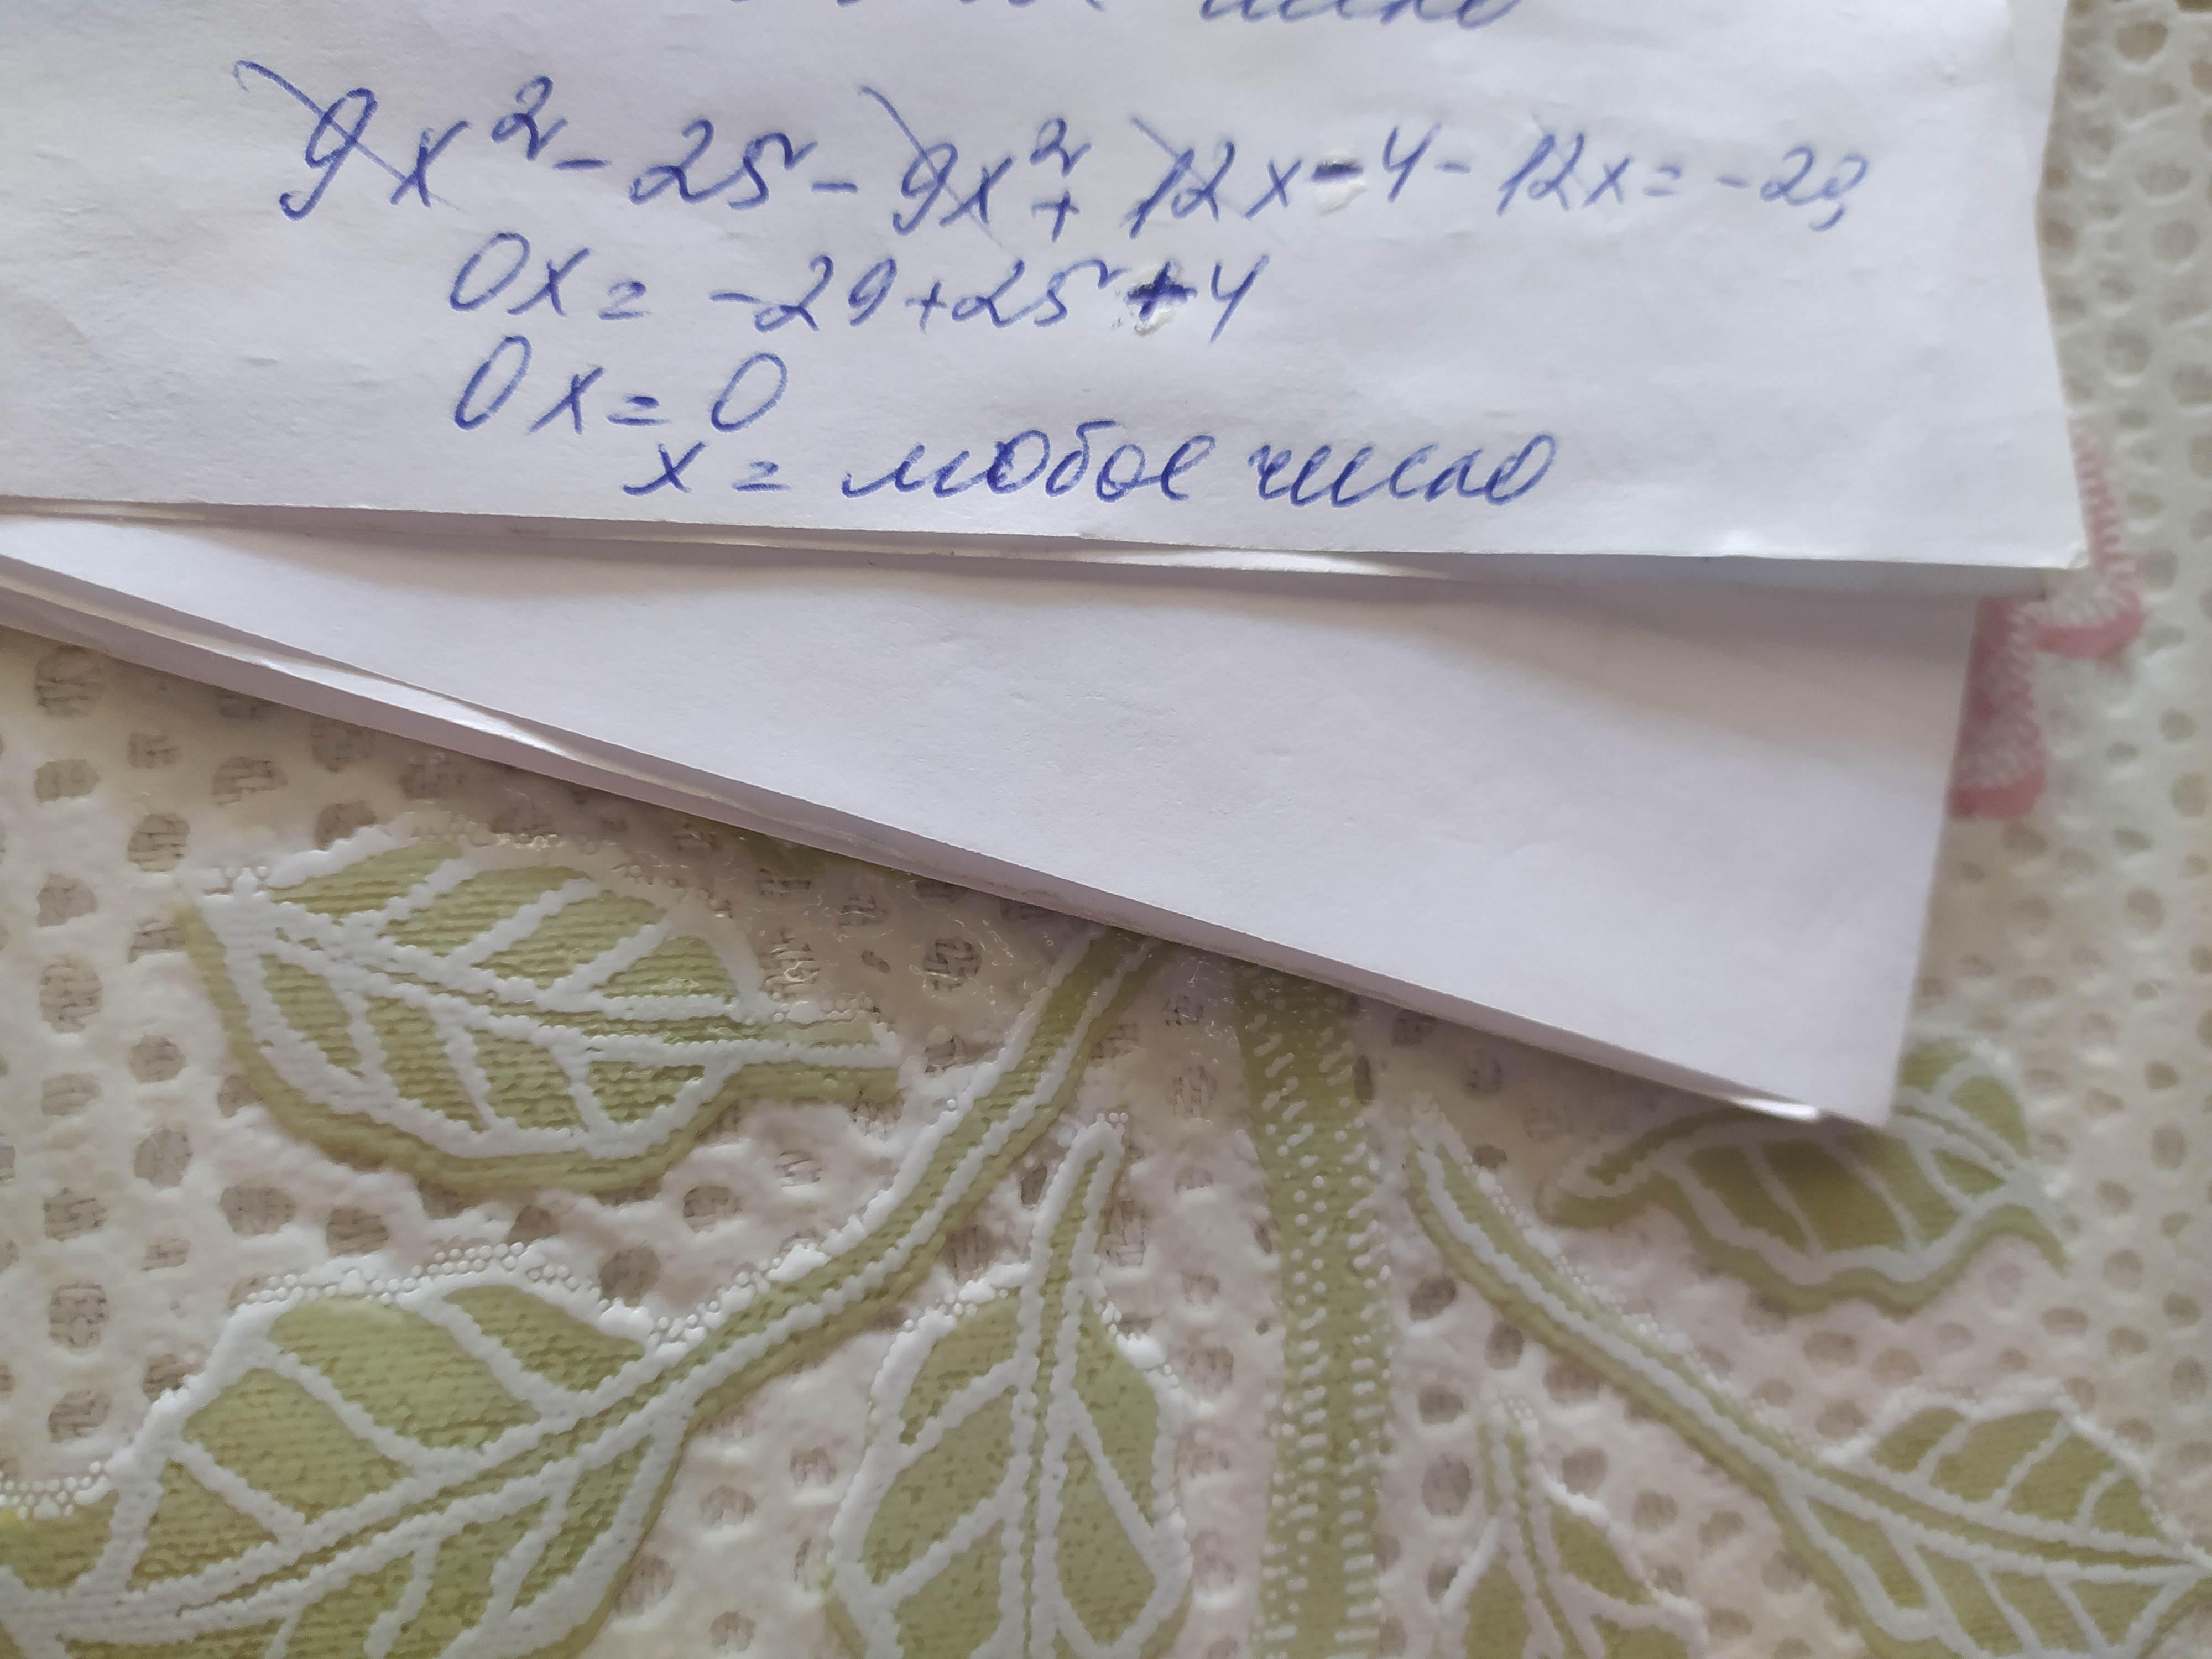 9x² - 25 - 9x² + 12x - 4 - 12x = -29
0x = -29 + 25 + 4
0x = 0
x = любое число